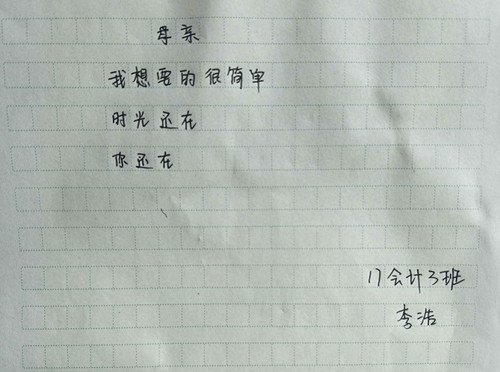 母亲
我想要的很简单
时光还在
你还在
17会计3班
李浩